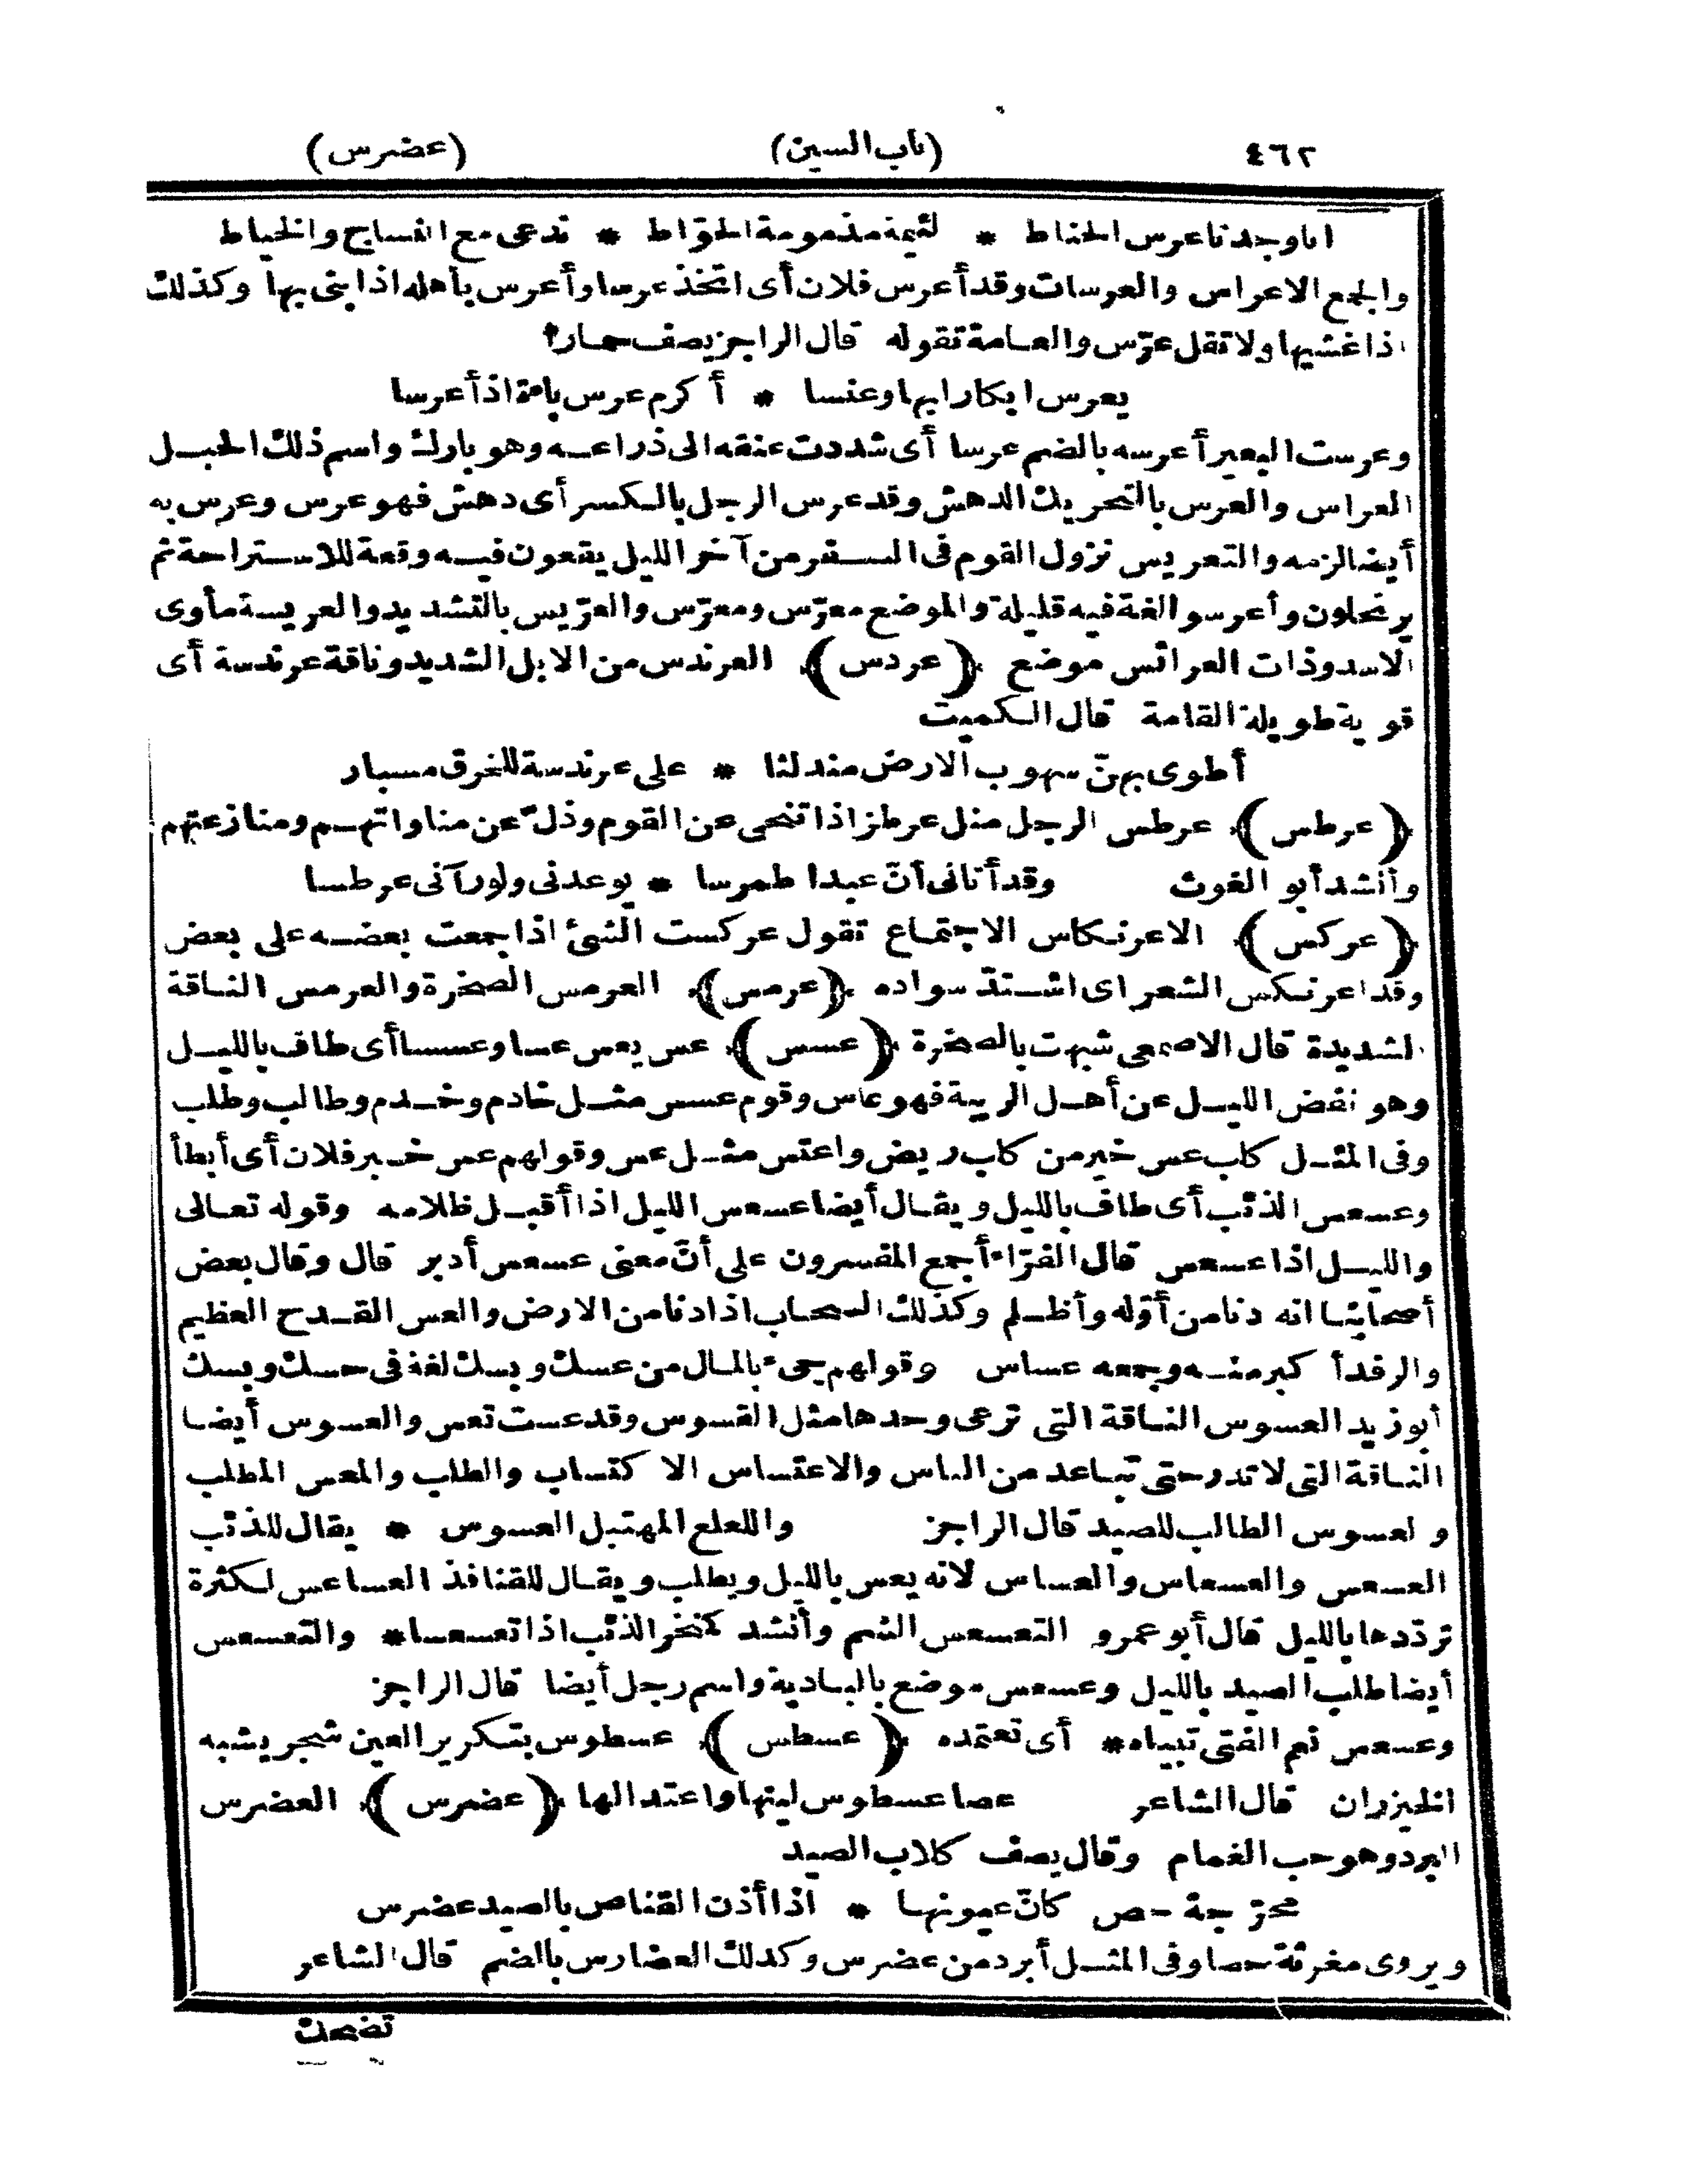 ٤٦٢ (باب السين) (عضرس)
انا وجدنا عرس الحناط * لئيمة مذمومة الحوّاط * ندعى مع النساج والخياط
والجمع الاعراس والعرسات وقد أعرس فلان أى اتخذ عرسا وأعرس بأهله اذا بنى بها وكذلك
اذا غشيها ولا تقل عرّس والعامة تقوله قال الراجز يصف حمارا
يعرس ابكارا بها وعنسا * أكرم عرس باءة اذ أعرسا
وعرست البعير أعرسه بالضم عرسا أى شددت عنقه الى ذراعه وهو بارك واسم ذلك الحبل
العراس والعرس بالتحريك الدهش وقد عرس الرجل بالكسر أى دهش فهو عرس وعرس به
أيضا لزمه والتعريس نزول القوم فى السفر من آخر الليل يقعون فيه وقعة للاستراحة ثم
يرتحلون وأعرسوا لغة فيه قليلة والموضع معرّس ومعرس والعرّيس بالتشديد والعريسة مأوى
الاسد وذات العرائس موضع ﴿عردس﴾ العرندس من الابل الشديد وناقة عرندسة أى
قوية طويلة القامة قال الكميت
أطوى بهنّ سهوب الارض مندلثا * على عرندسة للخرق مسبار
﴿عرطس﴾ عرطس الرجل مثل عرطز اذا تنحى عن القوم وذلّ عن مناواتهم ومنازعتهم
وأنشد أبو الغوث وقد أتانى أنّ عبدا طمرسا * يوعدنى ولو رآنى عرطسا
﴿عركس﴾ الاعرنكاس الاجتماع تقول عركست الشئ اذا جمعت بعضه على بعض
وقد اعرنكس الشعر اى اشتدّ سواده ﴿عرمس﴾ العرمس الصخرة والعرمس الناقة
الشديدة قال الاصمعى شبهت بالصخرة ﴿عسس﴾ عس يعس عسا وعسسا أى طاف بالليل
وهو نفض الليل عن أهل الريبة فهو عاس وقوم عسس مثل خادم وخدم وطالب وطلب
وفى المثل كلب عس خير من كلب ربض واعتس مثل عس وقولهم عس خبر فلان أى أبطأ
وعسعس الذئب أى طاف بالليل ويقال أيضا عسعس الليل اذا أقبل ظلامه وقوله تعالى
والليل اذا عسعس قال الفرّاء أجمع المفسرون على أنّ معنى عسعس أدبر قال وقال بعض
أصحابنا انه دنا من أوّله وأظلم وكذلك السحاب اذا دنا من الارض والعس القدح العظيم
والرفد أكبر منه وجمعه عساس وقولهم جىء بالمال من عسك وبسك لغة فى حسك وبسك
أبو زيد العسوس الناقة التى ترعى وحدها مثل القسوس وقد عست تعس والعسوس أيضا
الناقة التى لا تدر حتى تباعد من الناس والاعتساس الاكتساب والطلب والمعس المطلب
والعسوس الطالب للصيد قال الراجز واللعلع المهتبل العسوس * يقال للذئب
العسعس والعسعاس والعساس لانه يعس بالليل ويطلب ويقال للقنافذ العساعس لكثرة
تردّدها بالليل قال أبو عمرو التعسعس الشم وأنشد كمنخر الذئب اذا تعسعسا* والتعسعس
أيضا طلب الصيد بالليل وعسعس موضع بالبادية واسم رجل أيضا قال الراجز
وعسعس نعم الفتى تبياه* أى تعتمده ﴿عسطس﴾ عسطوس بتكرير العين شجر يشبه
الخيزران قال الشاعر عصا عسطوس لينها واعتدالها ﴿عضرس﴾ العضرس
البرد وهو حب الغمام وقال يصف كلاب الصيد
محرّجة حص كانّ عيونها * اذا أذن القناص بالصيد عضرس
ويروى مغرثة حصا وفى المثل أبرد من عضرس وكذلك العضارس بالضم قال الشاعر
تضحك